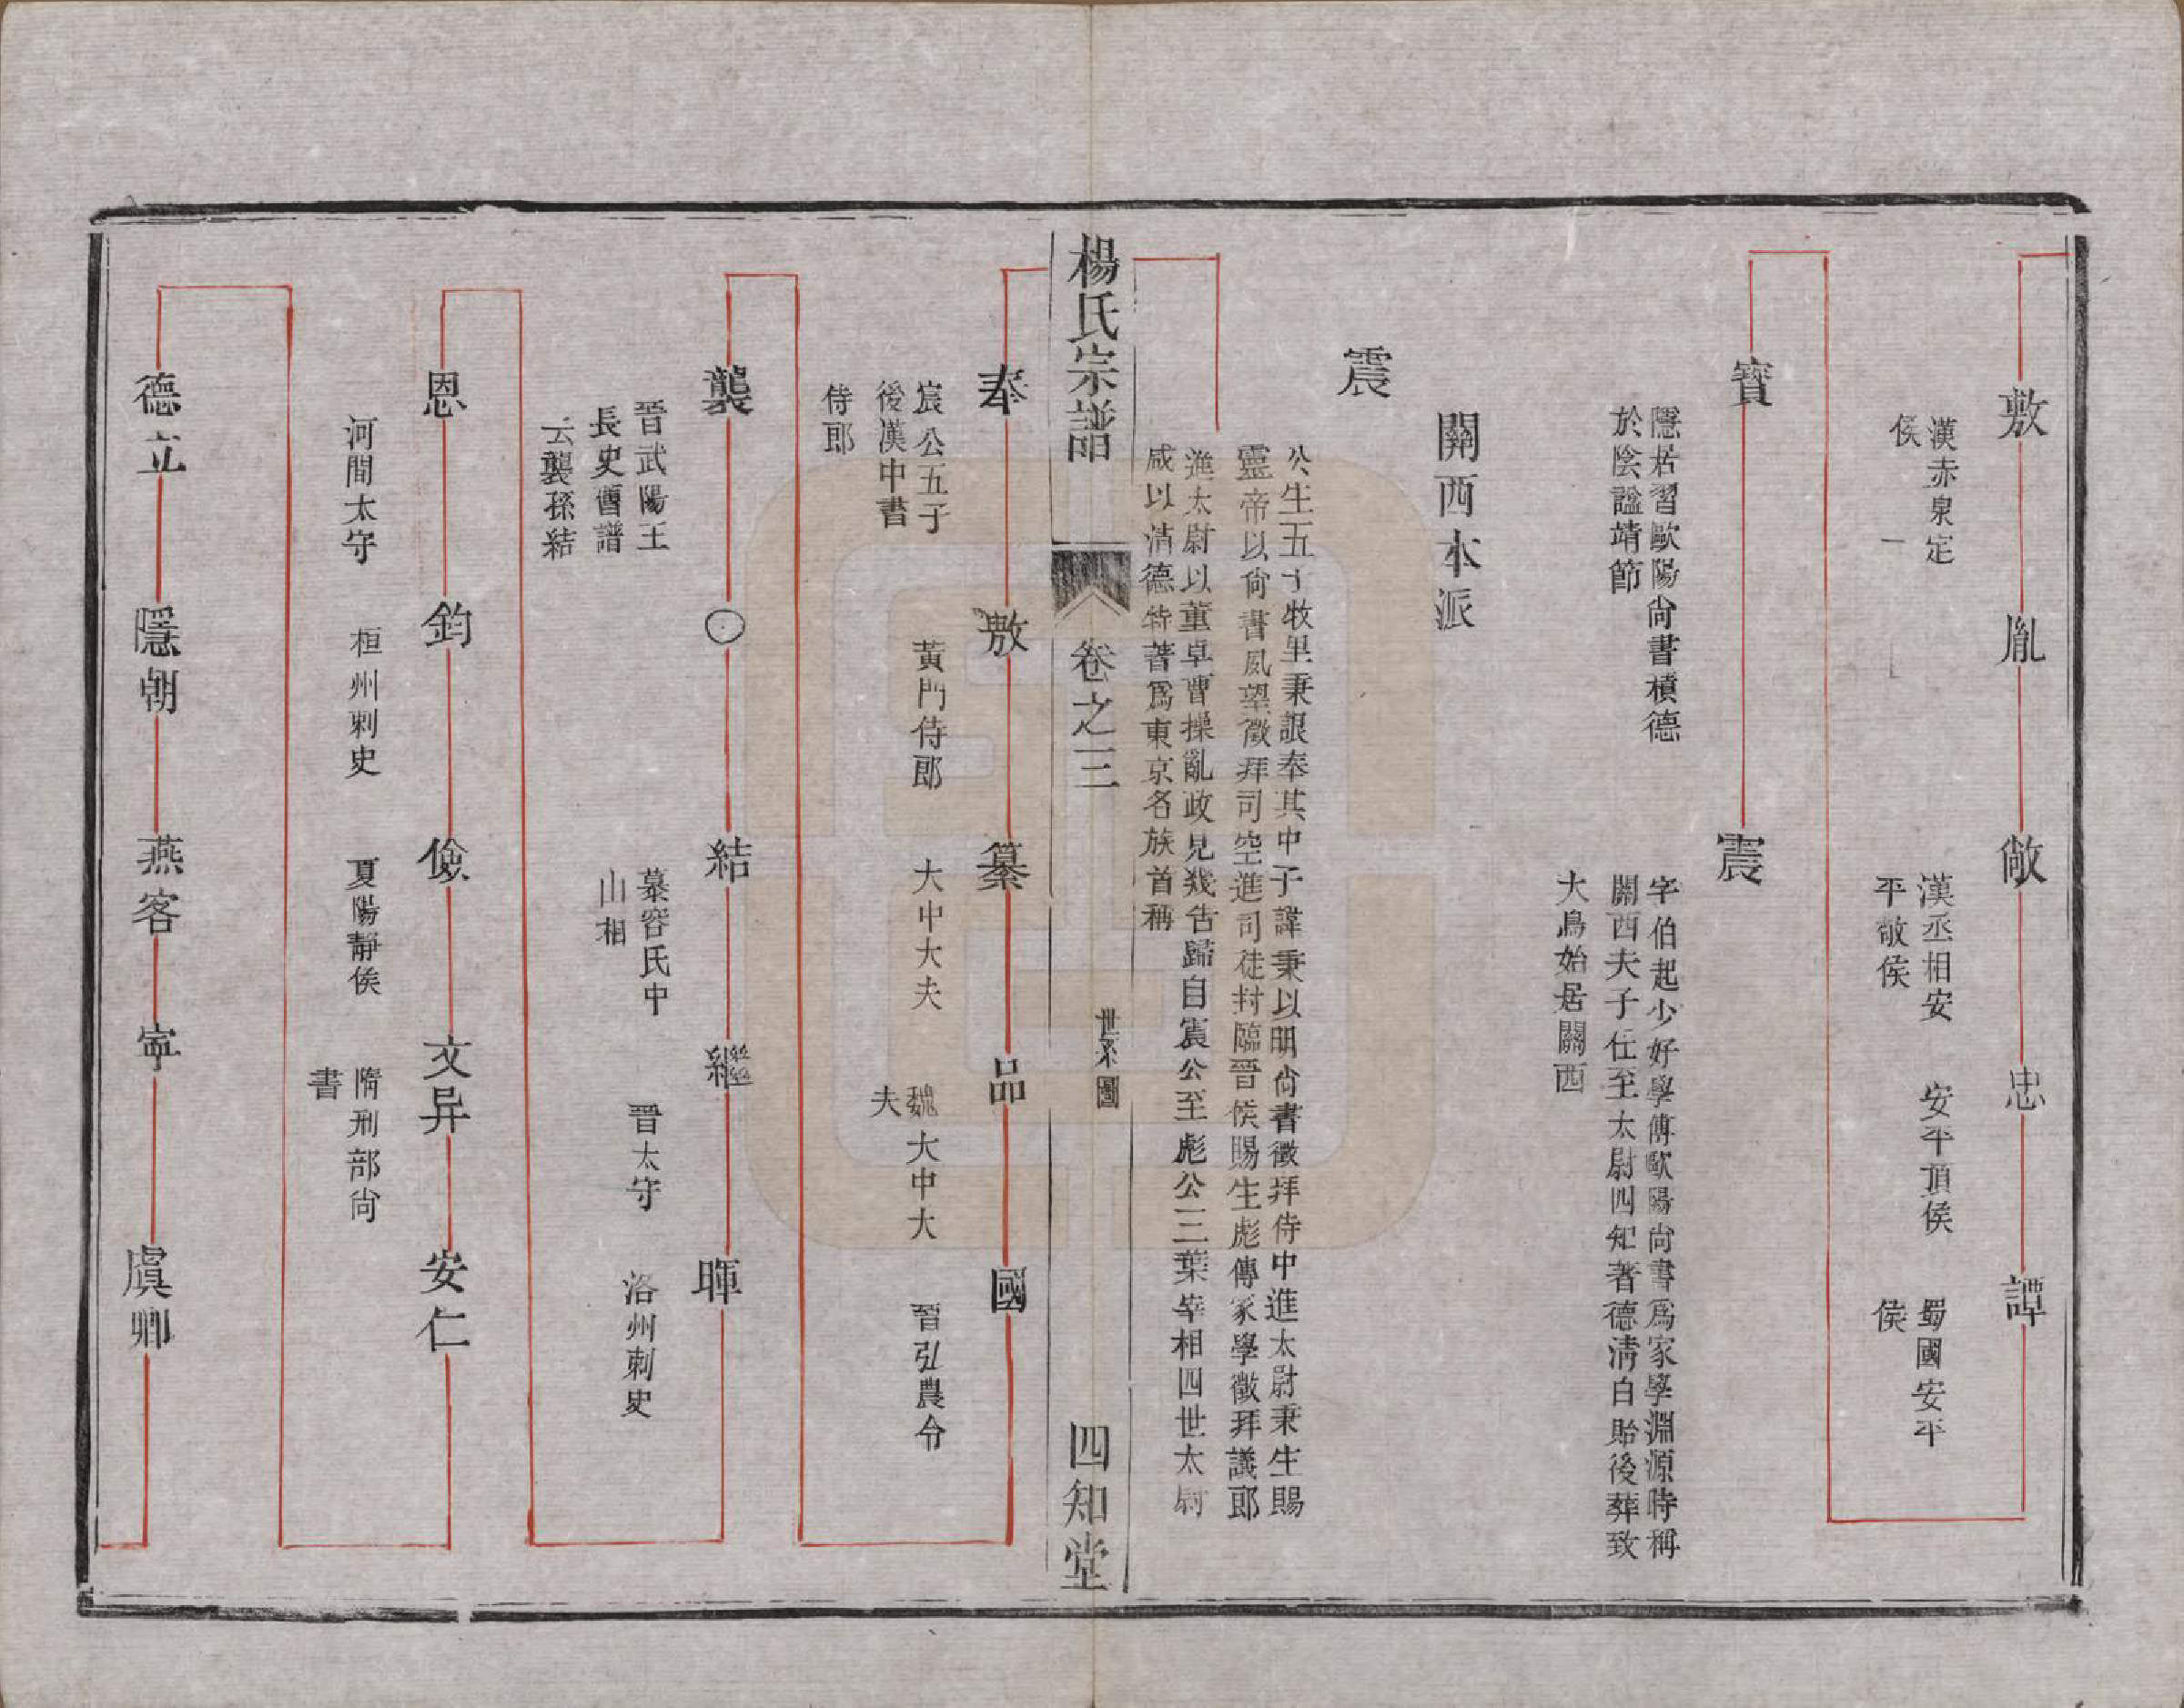 敷　胤　敞　忠　譚
漢赤泉定
侯一
漢丞相安
平敬侯
安平頃侯
蜀國安平
侯
寶　震
隱居習歐陽尙書積德
於陰謚靖節
字伯起少好學傳歐陽尙書爲家學淵源時稱
關西夫子仕至太尉四知著德淸白貽後葬致
大鳥始居關西
關西本派
震
公生五子牧里秉讓奉其中子諱秉以明尙書徵拜侍中進太尉秉生賜
靈帝以尙書風望徵拜司空進司徒封臨晉侯賜生彪傳家學徵拜議郎
進太尉以董卓曹操亂政見幾告歸自震公至彪公三葉宰相四世太尉
咸以淸德特著爲東京名族首稱
楊氏宗譜　卷之三　世系圖　四知堂
奉　敷　纂　品　國
宸公五子
後漢中書
侍郎
黃門侍郎
大中大夫
魏大中大
夫
晉弘農令
襲　〇　結　繼　暉
晉武陽王
長史舊譜
云襲孫結
慕容氏中
山相
晉太守
洛州刺史
恩　鈞　儉　文昇　安仁
河間太守
桓州刺史
夏陽靜侯
隋刑部尙
書
德立　隱朝　燕客　寧　虞卿